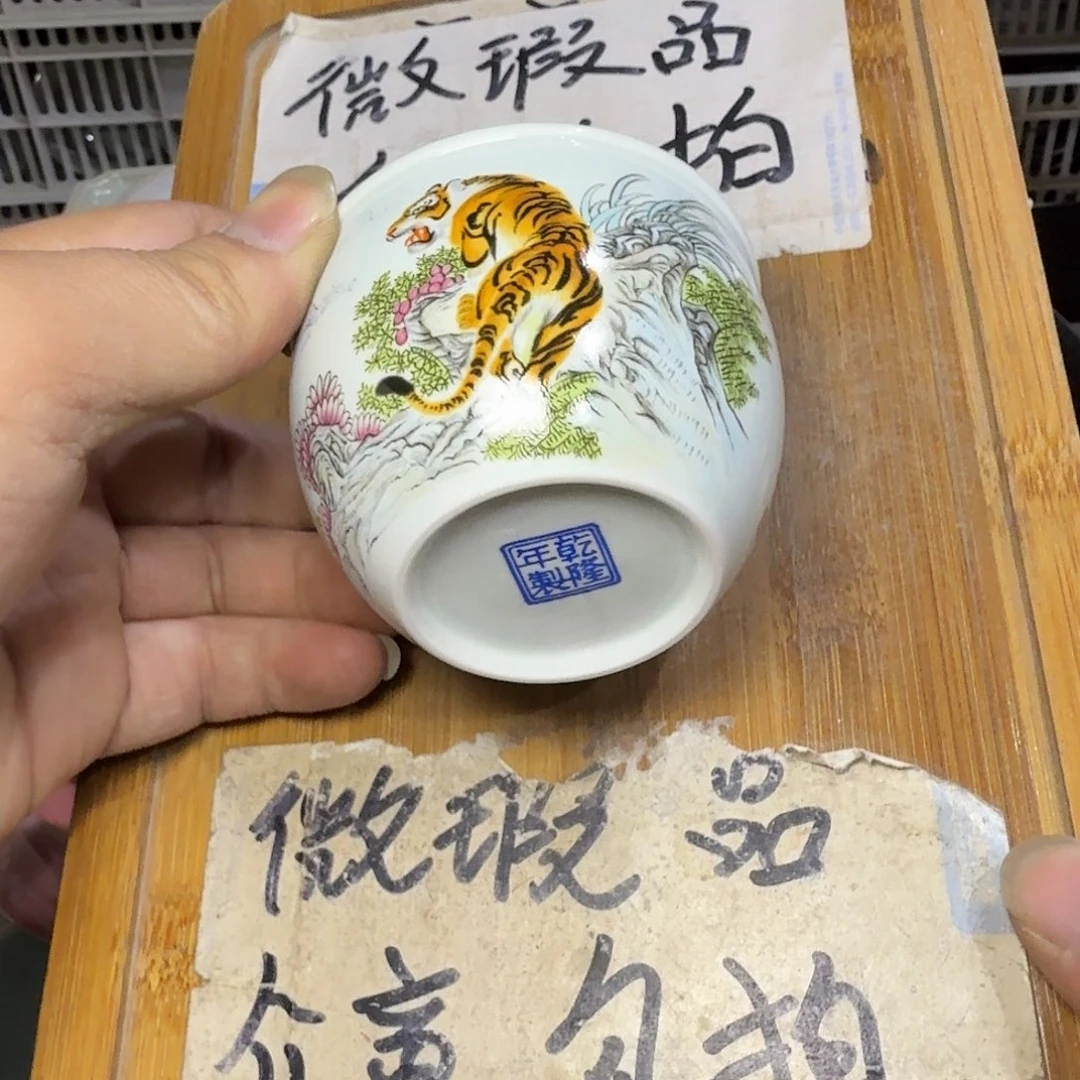 微瑕品
拍
乾隆
年製
微瑕品
介意勿拍